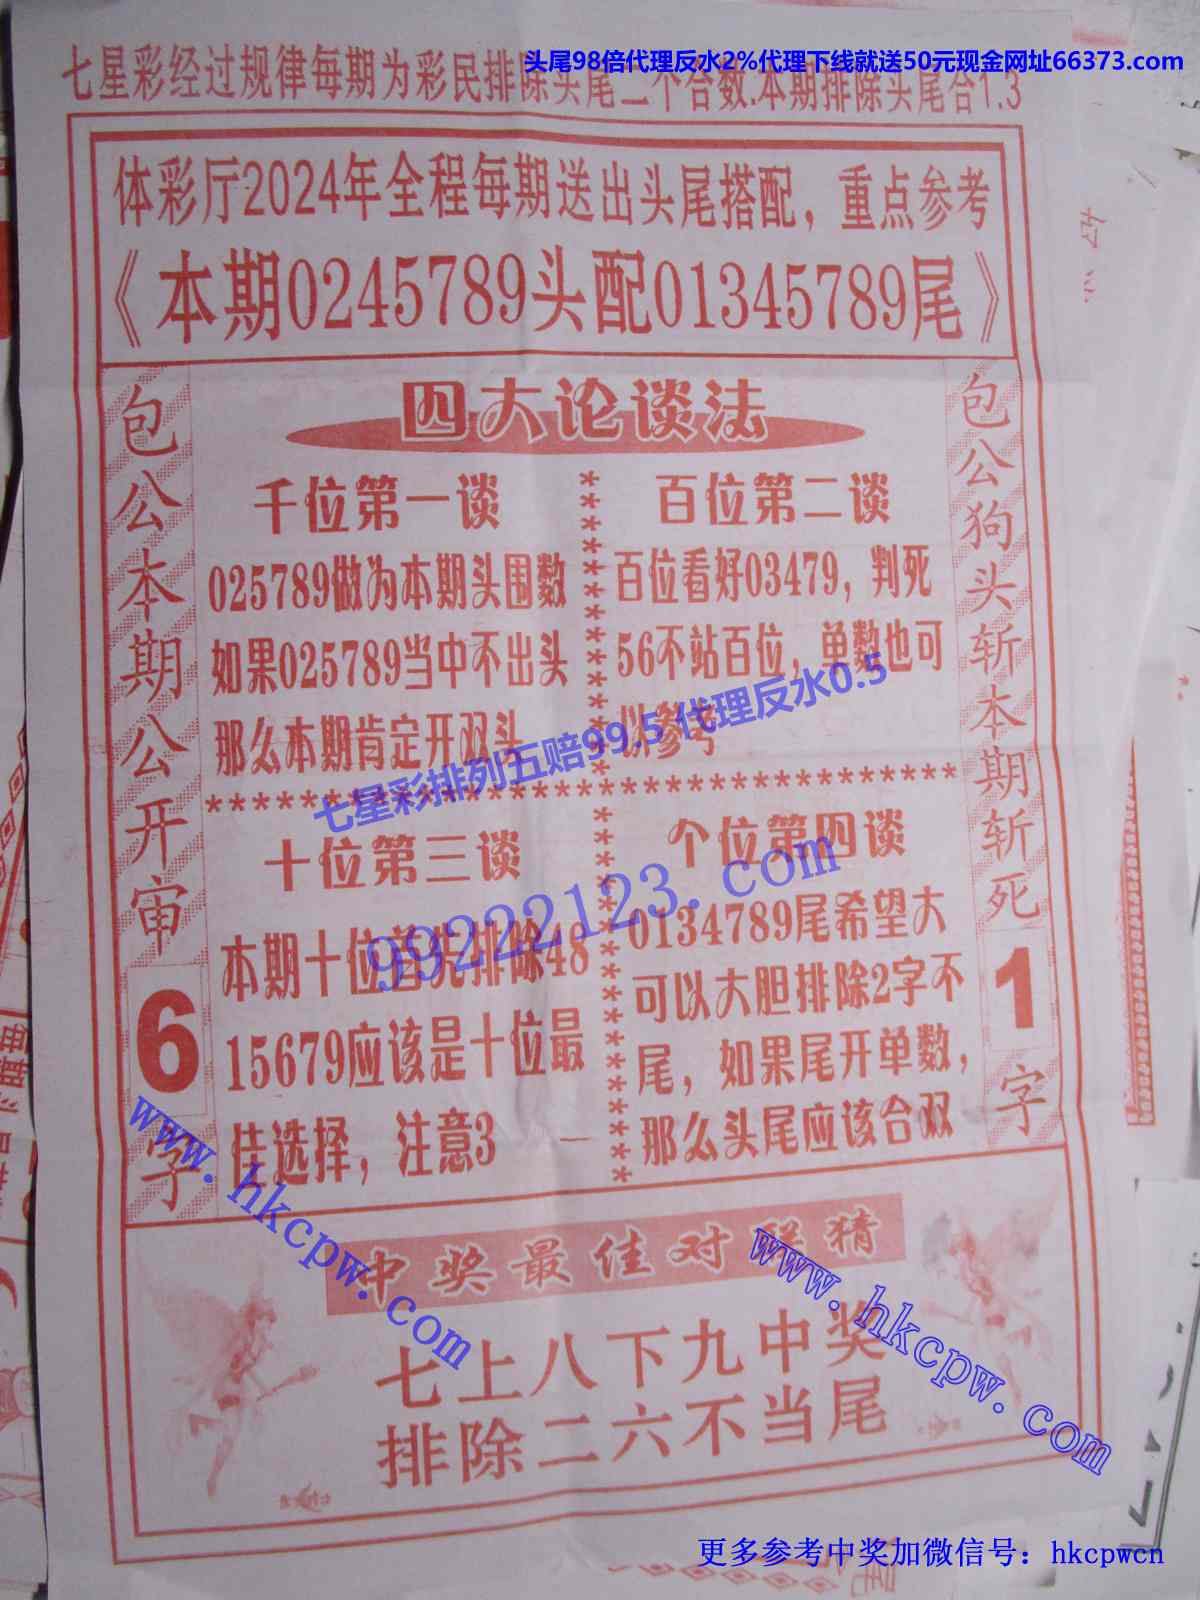 头尾98倍代理反水2%代理下线就送50元现金网址66373.com
七星彩经过规律每期为彩民排除头尾二个合数.本期排除头尾合1.3
体彩厅2024年全程每期送出头尾搭配，重点参考
《本期0245789头配01345789尾》
包公本期公开审
6
字
四大论谈法
千位第一谈
025789做为本期头围数
如果025789当中不出头
那么本期肯定开双头
百位第二谈
百位看好03479，判死
56不站百位，单数也可
以参考
七星彩排列五赔99.5 代理反水0.5
99222123.com
十位第三谈
本期十位首先排除48
15679应该是十位最
佳选择，注意3
个位第四谈
0134789尾希望大
可以大胆排除2字不
尾，如果尾开单数，
那么头尾应该合双
包公狗头斩本期斩死
1
字
www.hkcpw.com
www.hkcpw.com
中奖最佳对联猜
七上八下九中奖
排除二六不当尾
更多参考中奖加微信号：hkcpwcn